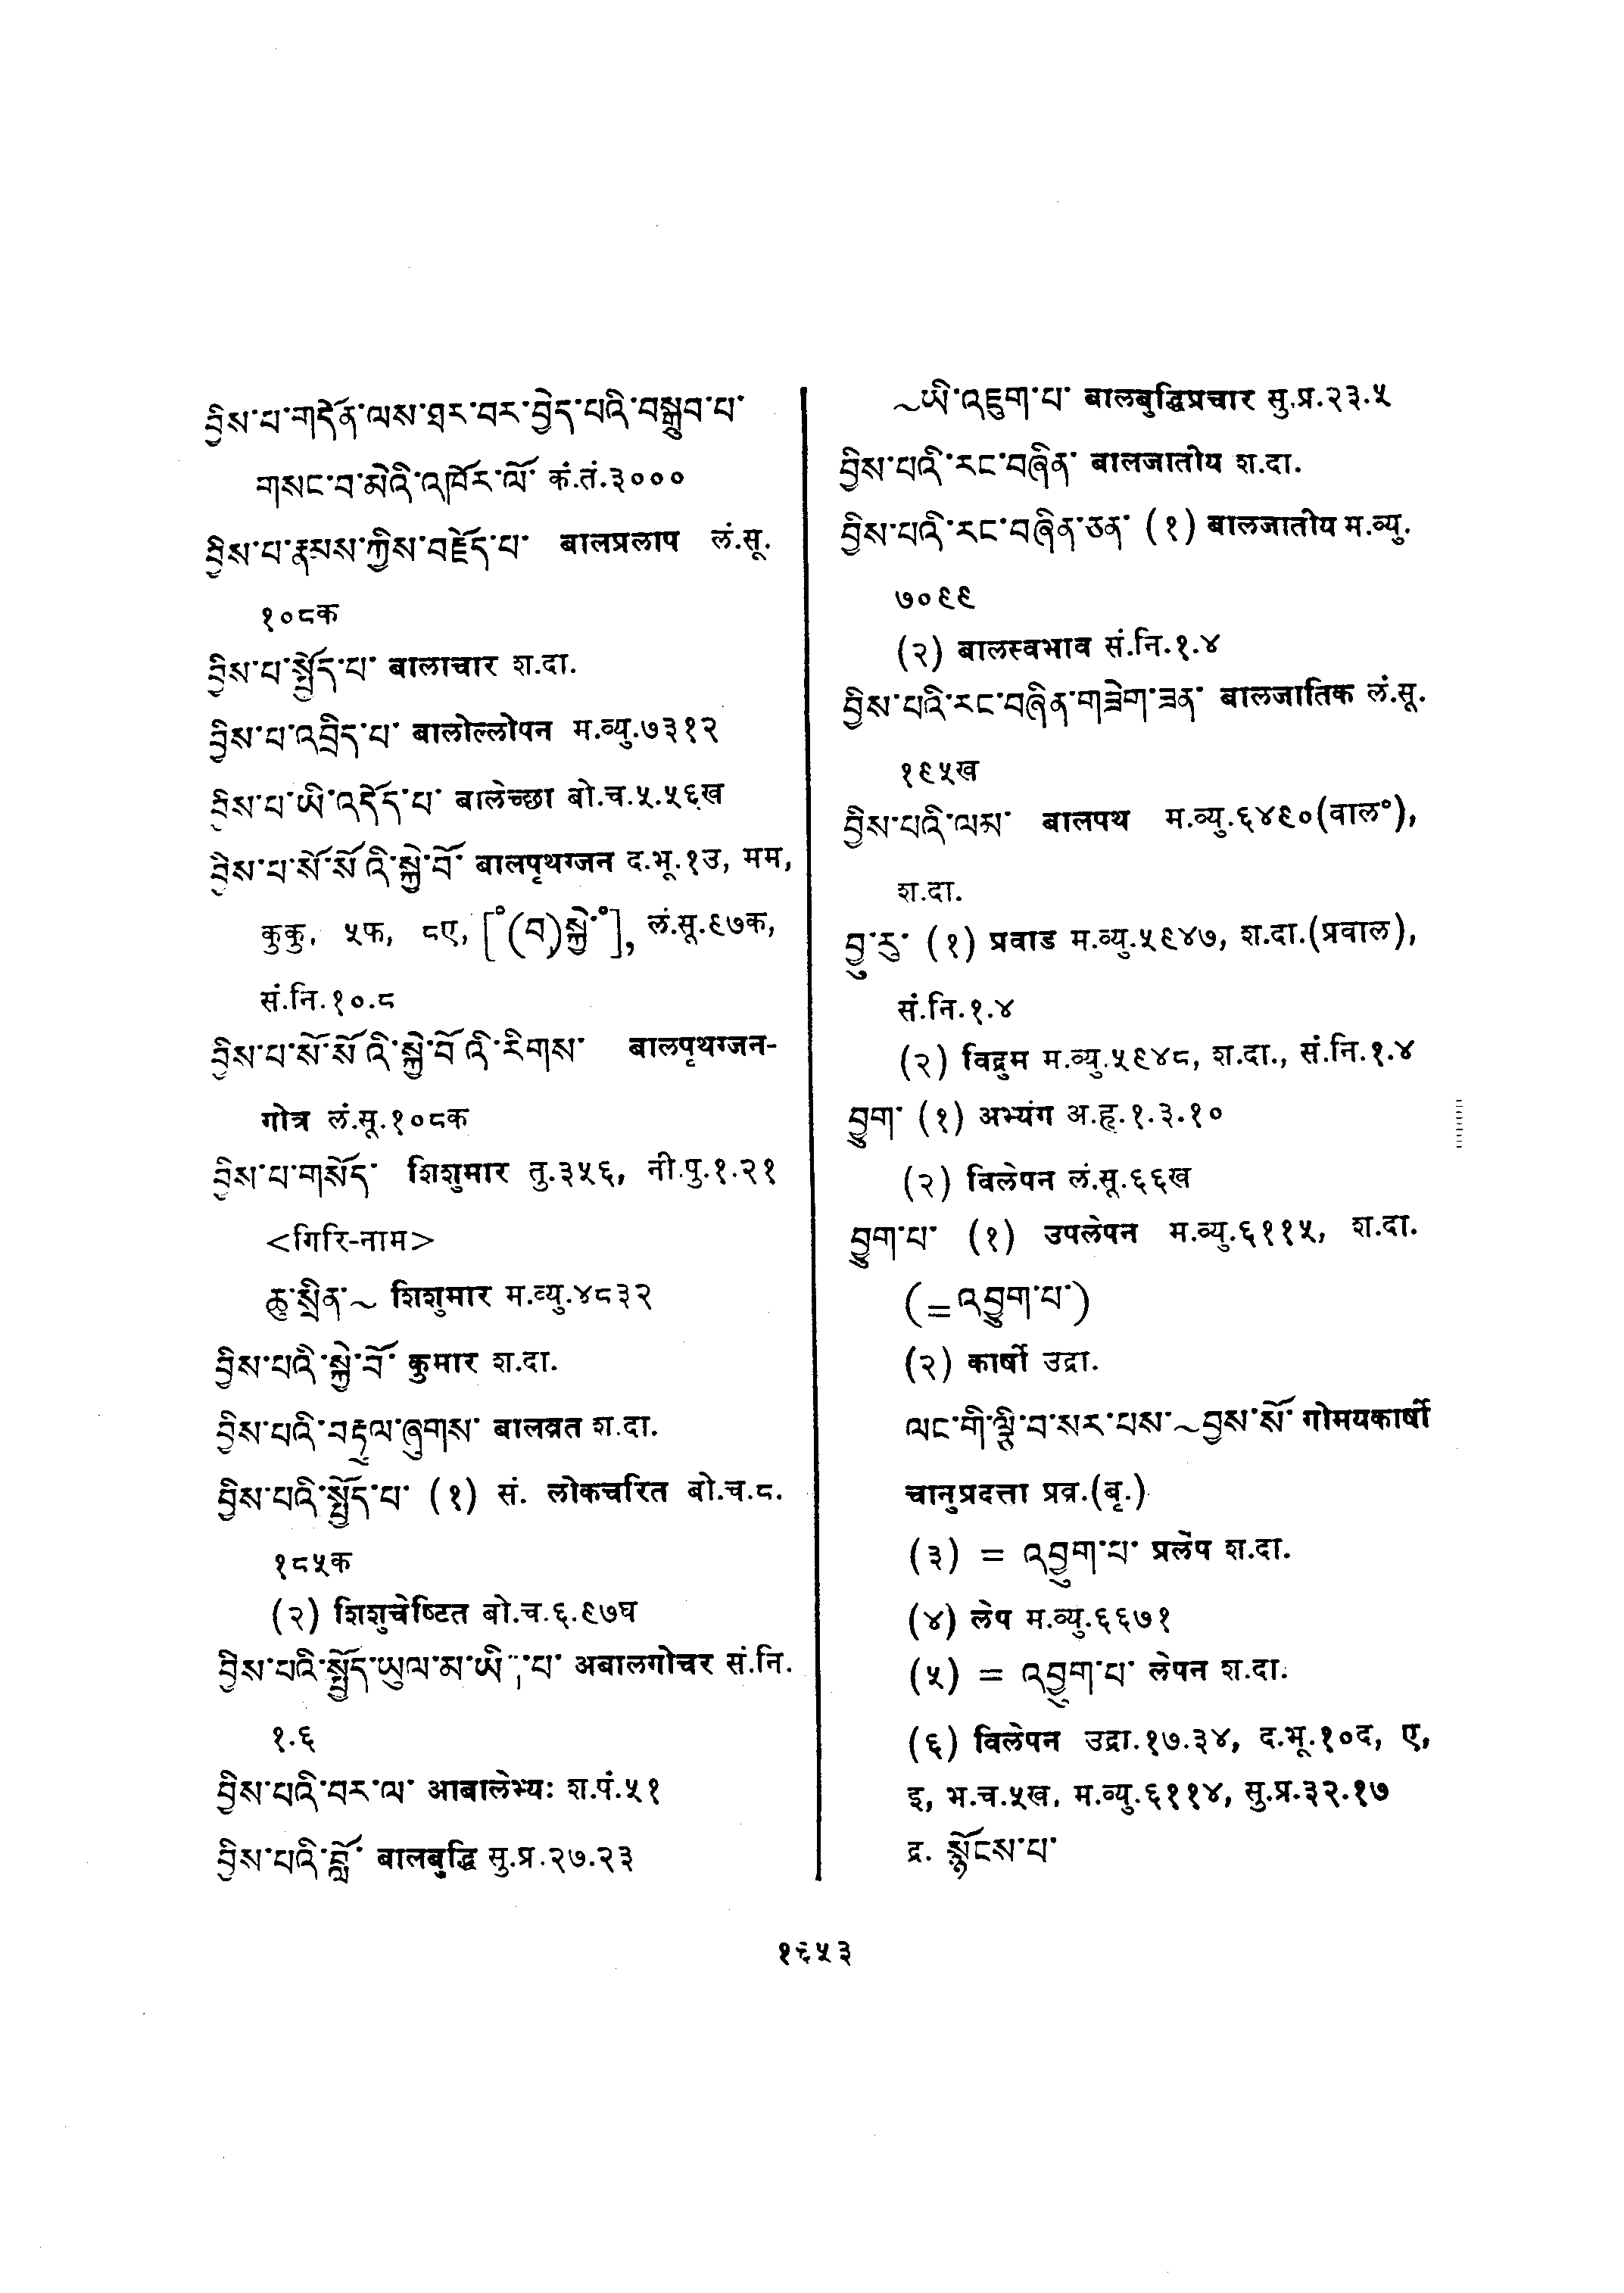 བྱིས་པ་གདོན་ལས་ཐར་བར་བྱེད་པའི་བསྒྲུབ་པ་
གསང་བ་མེའི་འཁོར་ལོ་ कं.तं.३०००
བྱིས་པ་རྣམས་ཀྱིས་བརྗོད་པ་ बालप्रलाप लं.सू.
१०८क
བྱིས་པ་སྤྱོད་པ་ बालाचार श.दा.
བྱིས་པ་འབྲིད་པ་ बालोल्लोपन म.व्यु.७३१२
བྱིས་པ་ཡི་འདོད་པ་ बालेच्छा बो.च.५.५६ख
བྱིས་པ་སོ་སོའི་སྐྱེ་བོ་ बालपृथग्जन द.भू.१उ, मम,
कुकु, ५फ, ८ए, [°(བ)སྐྱེ་°], लं.सू.९७क,
सं.नि.१०.८
བྱིས་པ་སོ་སོའི་སྐྱེ་བོའི་རིགས་ बालपृथग्जन-
गोत्र लं.सू.१०८क
བྱིས་པ་གསོད་ शिशुमार तु.३५६, नी.पु.१.२१
<गिरि-नाम>
ཆུ་སྲིན་~ शिशुमार म.व्यु.४८३२
བྱིས་པའི་སྐྱེ་བོ་ कुमार श.दा.
བྱིས་པའི་བརྟུལ་ཞུགས་ बालव्रत श.दा.
བྱིས་པའི་སྤྱོད་པ་ (१) सं. लोकचरित बो.च.८.
१८५क
(२) शिशुचेष्टित बो.च.६.९७घ
བྱིས་པའི་སྤྱོད་ཡུལ་མ་ཡི་པ་ अबालगोचर सं.नि.
१.६
བྱིས་པའི་བར་ལ་ आबालेभ्यः श.पं.५१
བྱིས་པའི་བློ་ बालबुद्धि सु.प्र.२७.२३
~ཡི་འཇུག་པ་ बालबुद्धिप्रचार सु.प्र.२३.५
བྱིས་པའི་རང་བཞིན་ बालजातीय श.दा.
བྱིས་པའི་རང་བཞིན་ཅན་ (१) बालजातीय म.व्यु.
७०९९
(२) बालस्वभाव सं.नि.१.४
བྱིས་པའི་རང་བཞིན་གཟེག་ཟན་ बालजातिक लं.सू.
१९५ख
བྱིས་པའི་ལམ་ बालपथ म.व्यु.६४९०(वाल°),
श.दा.
བྱུ་རུ་ (१) प्रवाड म.व्यु.५९४७, श.दा.(प्रवाल),
सं.नि.१.४
(२) विद्रुम म.व्यु.५९४८, श.दा., सं.नि.१.४
བྱུག་ (१) अभ्यंग अ.हृ.१.३.१०
(२) विलेपन लं.सू.६६ख
བྱུག་པ་ (१) उपलेपन म.व्यु.६११५, श.दा.
(=འབྱུག་པ་)
(२) कार्षी उद्रा.
ལང་གི་ལྕི་བ་སར་པས་~བྱས་སོ་ गोमयकार्षी
चानुप्रदत्ता प्रव्र.(बृ.)
(३) = འབྱུག་པ་ प्रलेप श.दा.
(४) लेप म.व्यु.६६७१
(५) = འབྱུག་པ་ लेपन श.दा.
(६) विलेपन उद्रा.१७.३४, द.भू.१०द, ए,
इ, भ.च.५ख, म.व्यु.६११४, सु.प्र.३२.१७
द्र. སྙོངས་པ་
१६५३